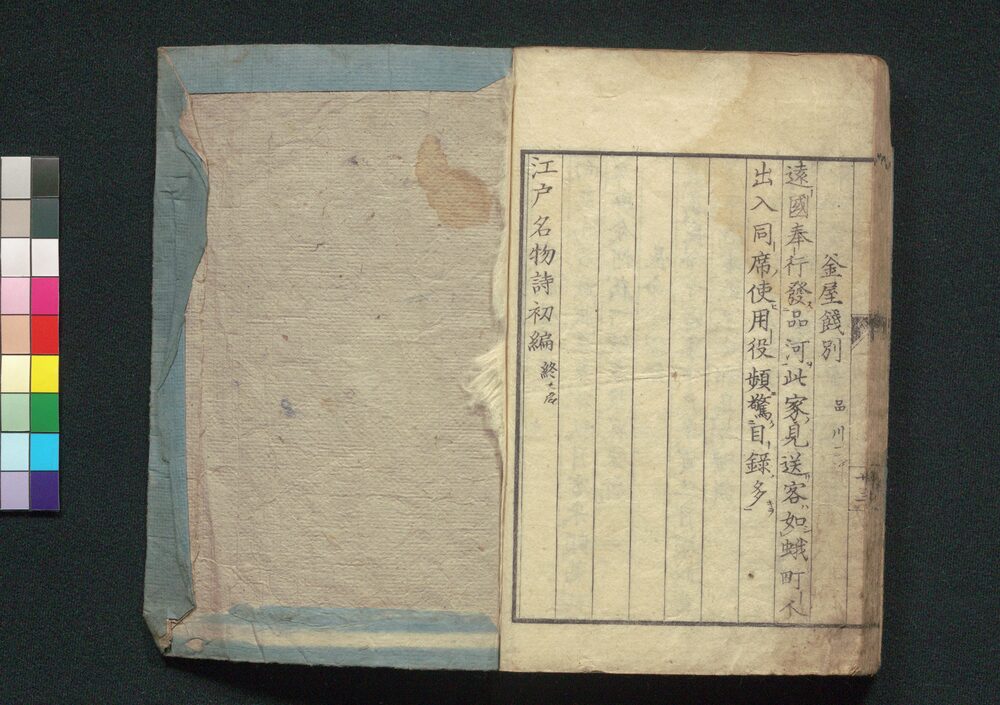 釜屋餞別 品川
遠國奉行發品河此家見送客如蛾町人
出入同席使用役頻驚目錄多
江戸名物詩初編 終